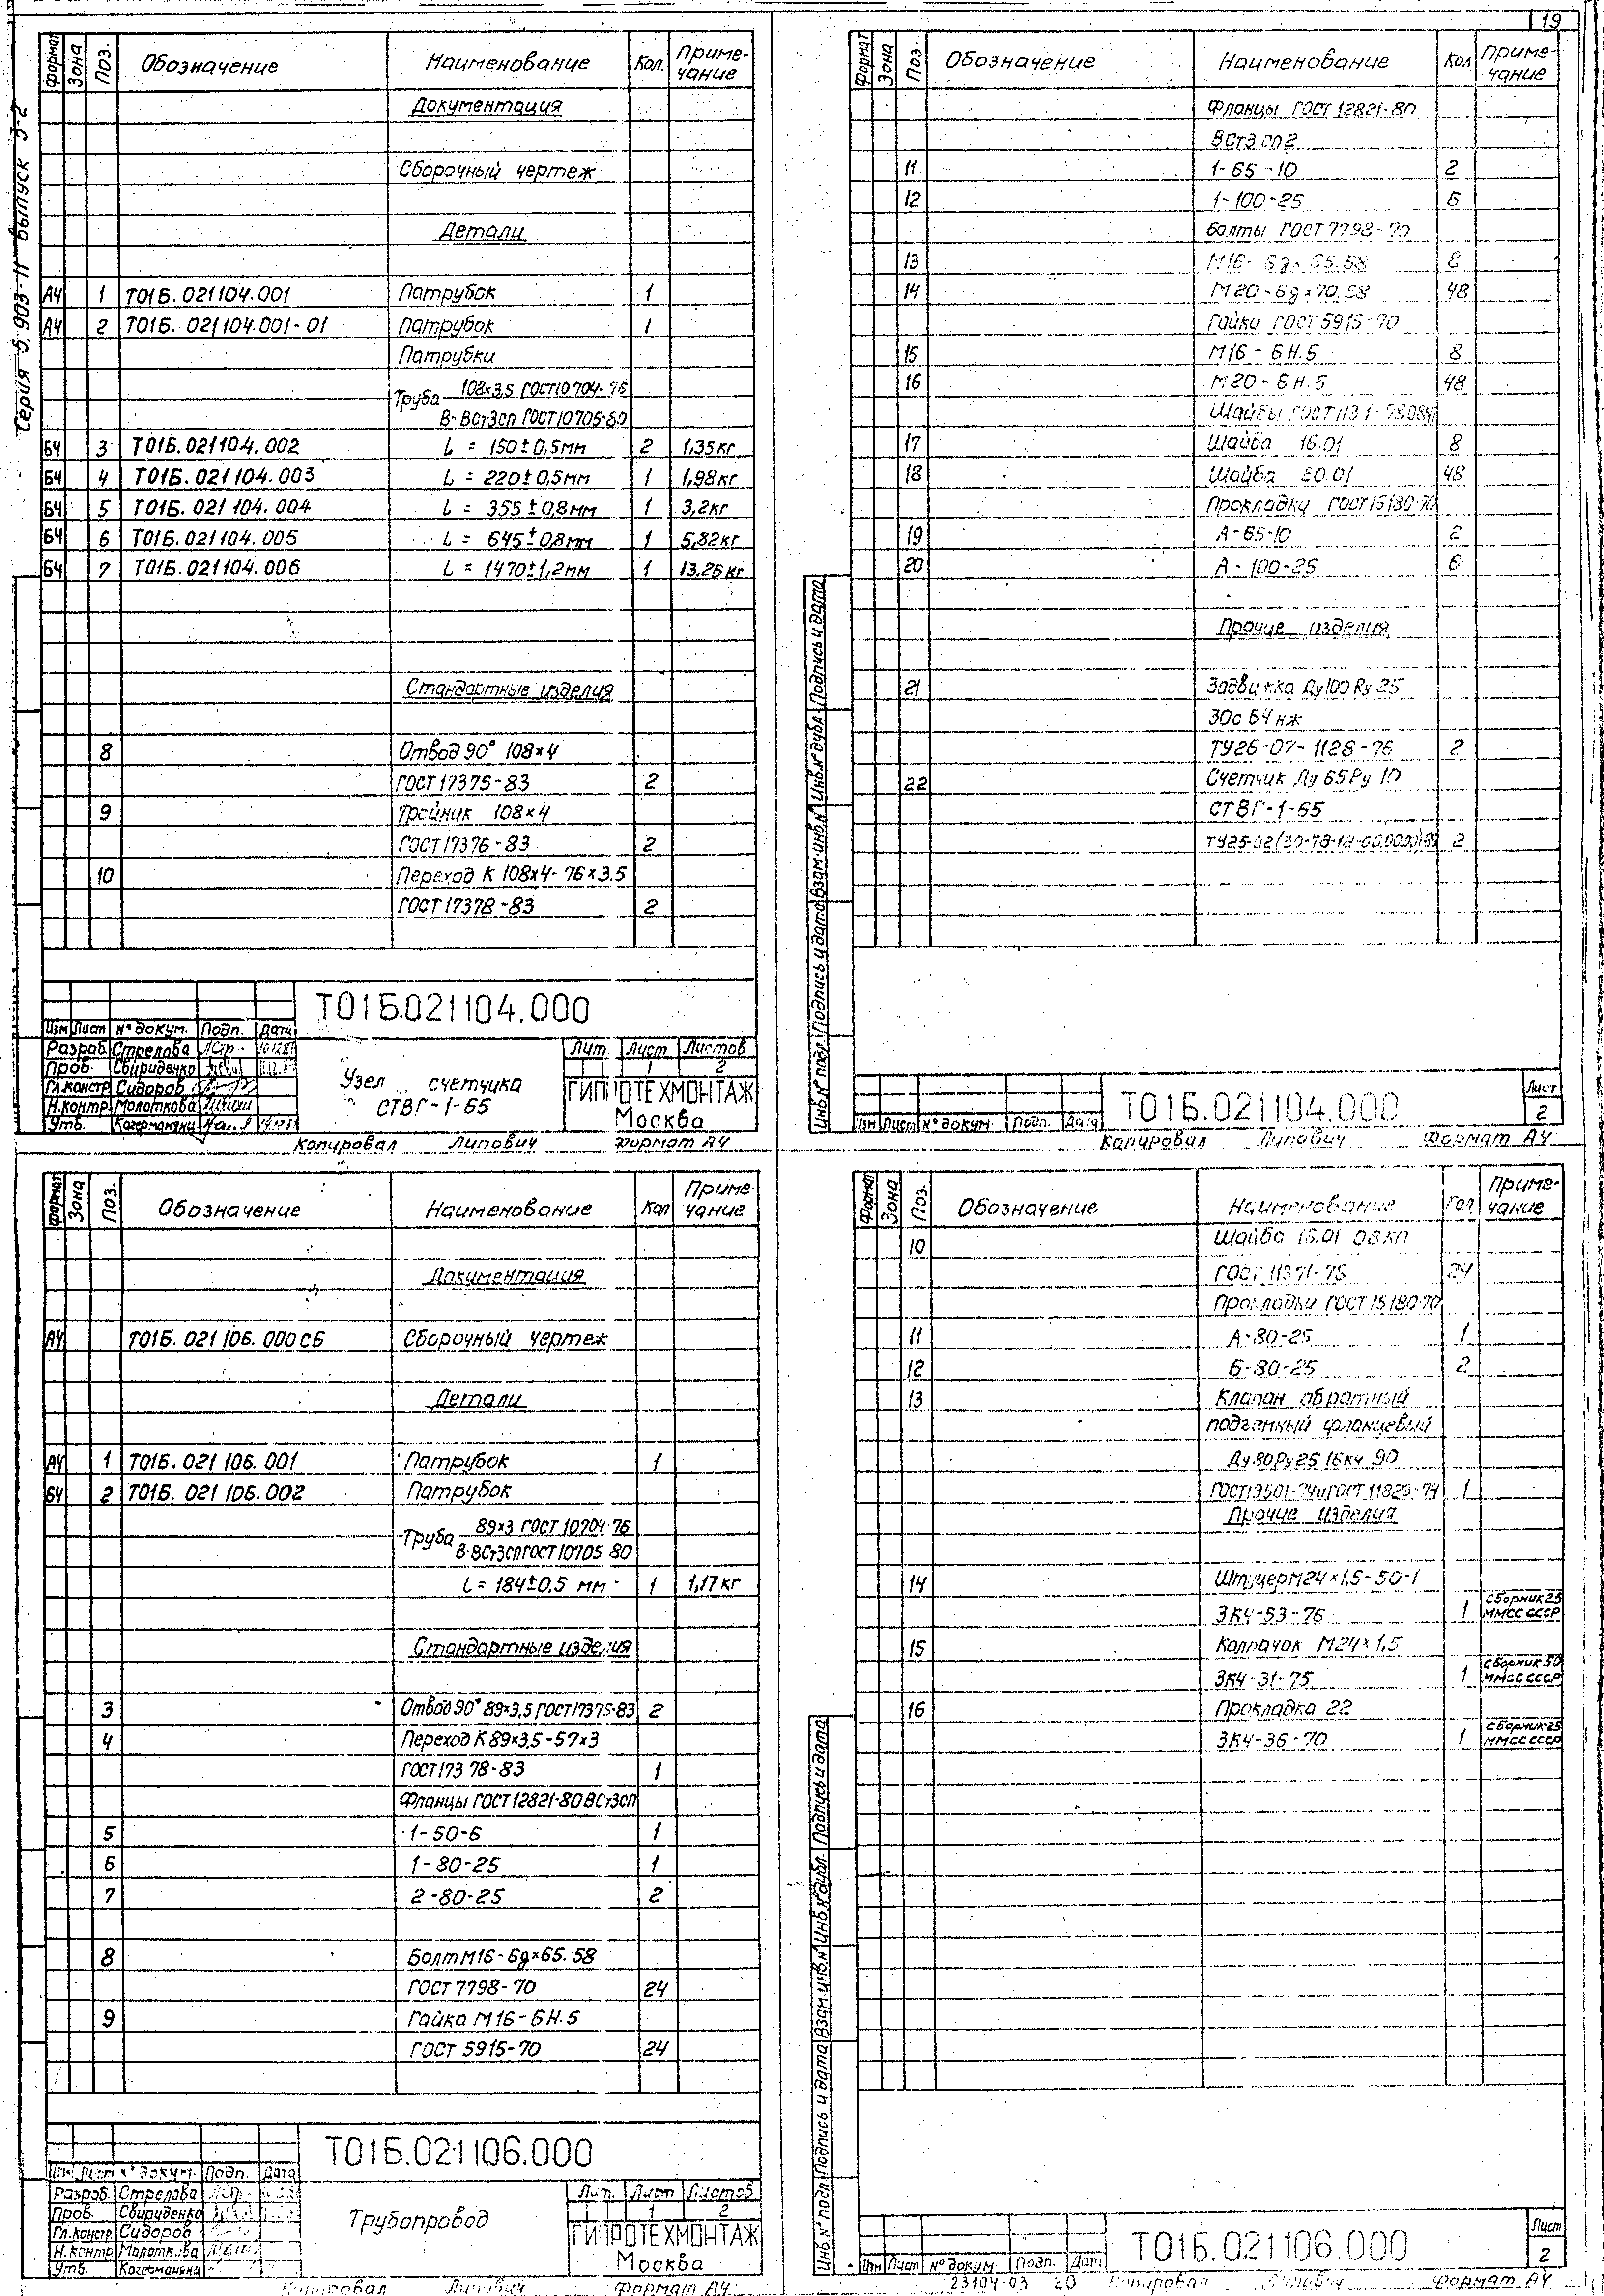 19
Серия 5.903-11 выпуск 3-2
Формат Зона Поз. Обозначение Наименование Кол. Приме-чание
Документация
Сборочный чертеж
Детали
А4 1 Т01Б.021104.001 Патрубок 1
А4 2 Т01Б.021104.001-01 Патрубок 1
Патрубки
Труба 108×3,5 ГОСТ10704-76
В-ВСт3сп ГОСТ10705-80
БЧ 3 Т01Б.021104.002 L = 150±0,5мм 2 1,35кг
БЧ 4 Т01Б.021104.003 L = 220±0,5мм 1 1,98кг
БЧ 5 Т01Б.021104.004 L = 355±0,8мм 1 3,2кг
БЧ 6 Т01Б.021104.005 L = 645±0,8мм 1 5,82кг
БЧ 7 Т01Б.021104.006 L = 1470±1,2мм 1 13.26кг
Стандартные изделия
8 Отвод 90° 108×4
ГОСТ 17375-83 2
9 Тройник 108×4
ГОСТ 17376-83 2
10 Переход К 108×4-76×3,5
ГОСТ 17378-83 2
Т01Б.021104.000
Изм Лист № докум. Подп. Дата
Разраб. Стрелова
Пров. Свириденко
Гл.констр Сидоров
Н.контр. Молоткова
Утв.
Узел счетчика
СТВГ-1-65
Лит. Лист Листов
1 2
ГИПРОТЕХМОНТАЖ
Москва
Копировал Липович Формат А4
Формат Зона Поз. Обозначение Наименование Кол Приме-чание
Фланцы ГОСТ 12821-80
ВСт3сп2
11 1-65-10 2
12 1-100-25 6
Болты ГОСТ 7798-70
13 М16-6g×65.58 8
14 М20-6g×70.58 48
Гайки ГОСТ 5915-70
15 М16-6Н.5 8
16 М20-6Н.5 48
Шайбы
17 Шайба 16.01 8
18 Шайба 20.01 48
Прокладки ГОСТ 15180-70
19 А-65-10 2
20 А-100-25 6
Прочие изделия
21 Задвижка Ду100 Ру 25
30с 64 нж
ТУ26-07-1128-76 2
22 Счетчик Ду 65 Ру 10
СТВГ-1-65
2
Инв.№ подл. Подпись и дата Взам.инв.№ Инв.№ дубл. Подпись и дата
Изм Лист № докум. Подп. Дата
Т01Б.021104.000
Лист
2
Копировал Липович Формат А4
Формат Зона Поз. Обозначение Наименование Кол Приме-чание
Документация
А4 Т01Б.021106.000СБ Сборочный чертеж
Детали
А4 1 Т01Б.021106.001 Патрубок 1
БЧ 2 Т01Б.021106.002 Патрубок
Труба 89×3 ГОСТ 10704-76
В-ВСт3сп ГОСТ 10705-80
L = 184±0,5 мм 1 1,17кг
Стандартные изделия
3 Отвод 90° 89×3,5 ГОСТ17375-83 2
4 Переход К 89×3,5-57×3
ГОСТ 17378-83 1
Фланцы ГОСТ 12821-80 ВСт3сп
5 1-50-6 1
6 1-80-25 1
7 2-80-25 2
8 Болт М16-6g×65.58
ГОСТ 7798-70 24
9 Гайка М16-6Н.5
ГОСТ 5915-70 24
Т01Б.021106.000
Изм Лист № докум. Подп. Дата
Разраб. Стрелова
Пров. Свириденко
Гл.констр Сидоров
Н.контр Молоткова
Утв.
Трубопровод
Лит. Лист Листов
1 2
ГИПРОТЕХМОНТАЖ
Москва
Копировал Липович Формат А4
Формат Зона Поз. Обозначение Наименование Кол Приме-чание
10 Шайба 16.01 08кп
ГОСТ 11371-78 24
Прокладки ГОСТ 15180-70
11 А-80-25 1
12 Б-80-25 2
13 Клапан обратный
подъемный фланцевый
Ду 80 Ру 25 16кч 90
1
Прочие изделия
14 Штуцер М24×1,5-50-1
ЗК4-53-76 1 сборник 25 ММСС СССР
15 Колпачок М24×1,5
ЗК4-31-75 1 сборник 50 ММСС СССР
16 Прокладка 22
ЗК4-36-70 1 сборник 25 ММСС СССР
Инв.№ подл. Подпись и дата Взам.инв.№ Инв.№ дубл. Подпись и дата
Изм Лист № докум. Подп. Дат
Т01Б.021106.000
Лист
2
23104-03 20 Копировал Липович Формат А4